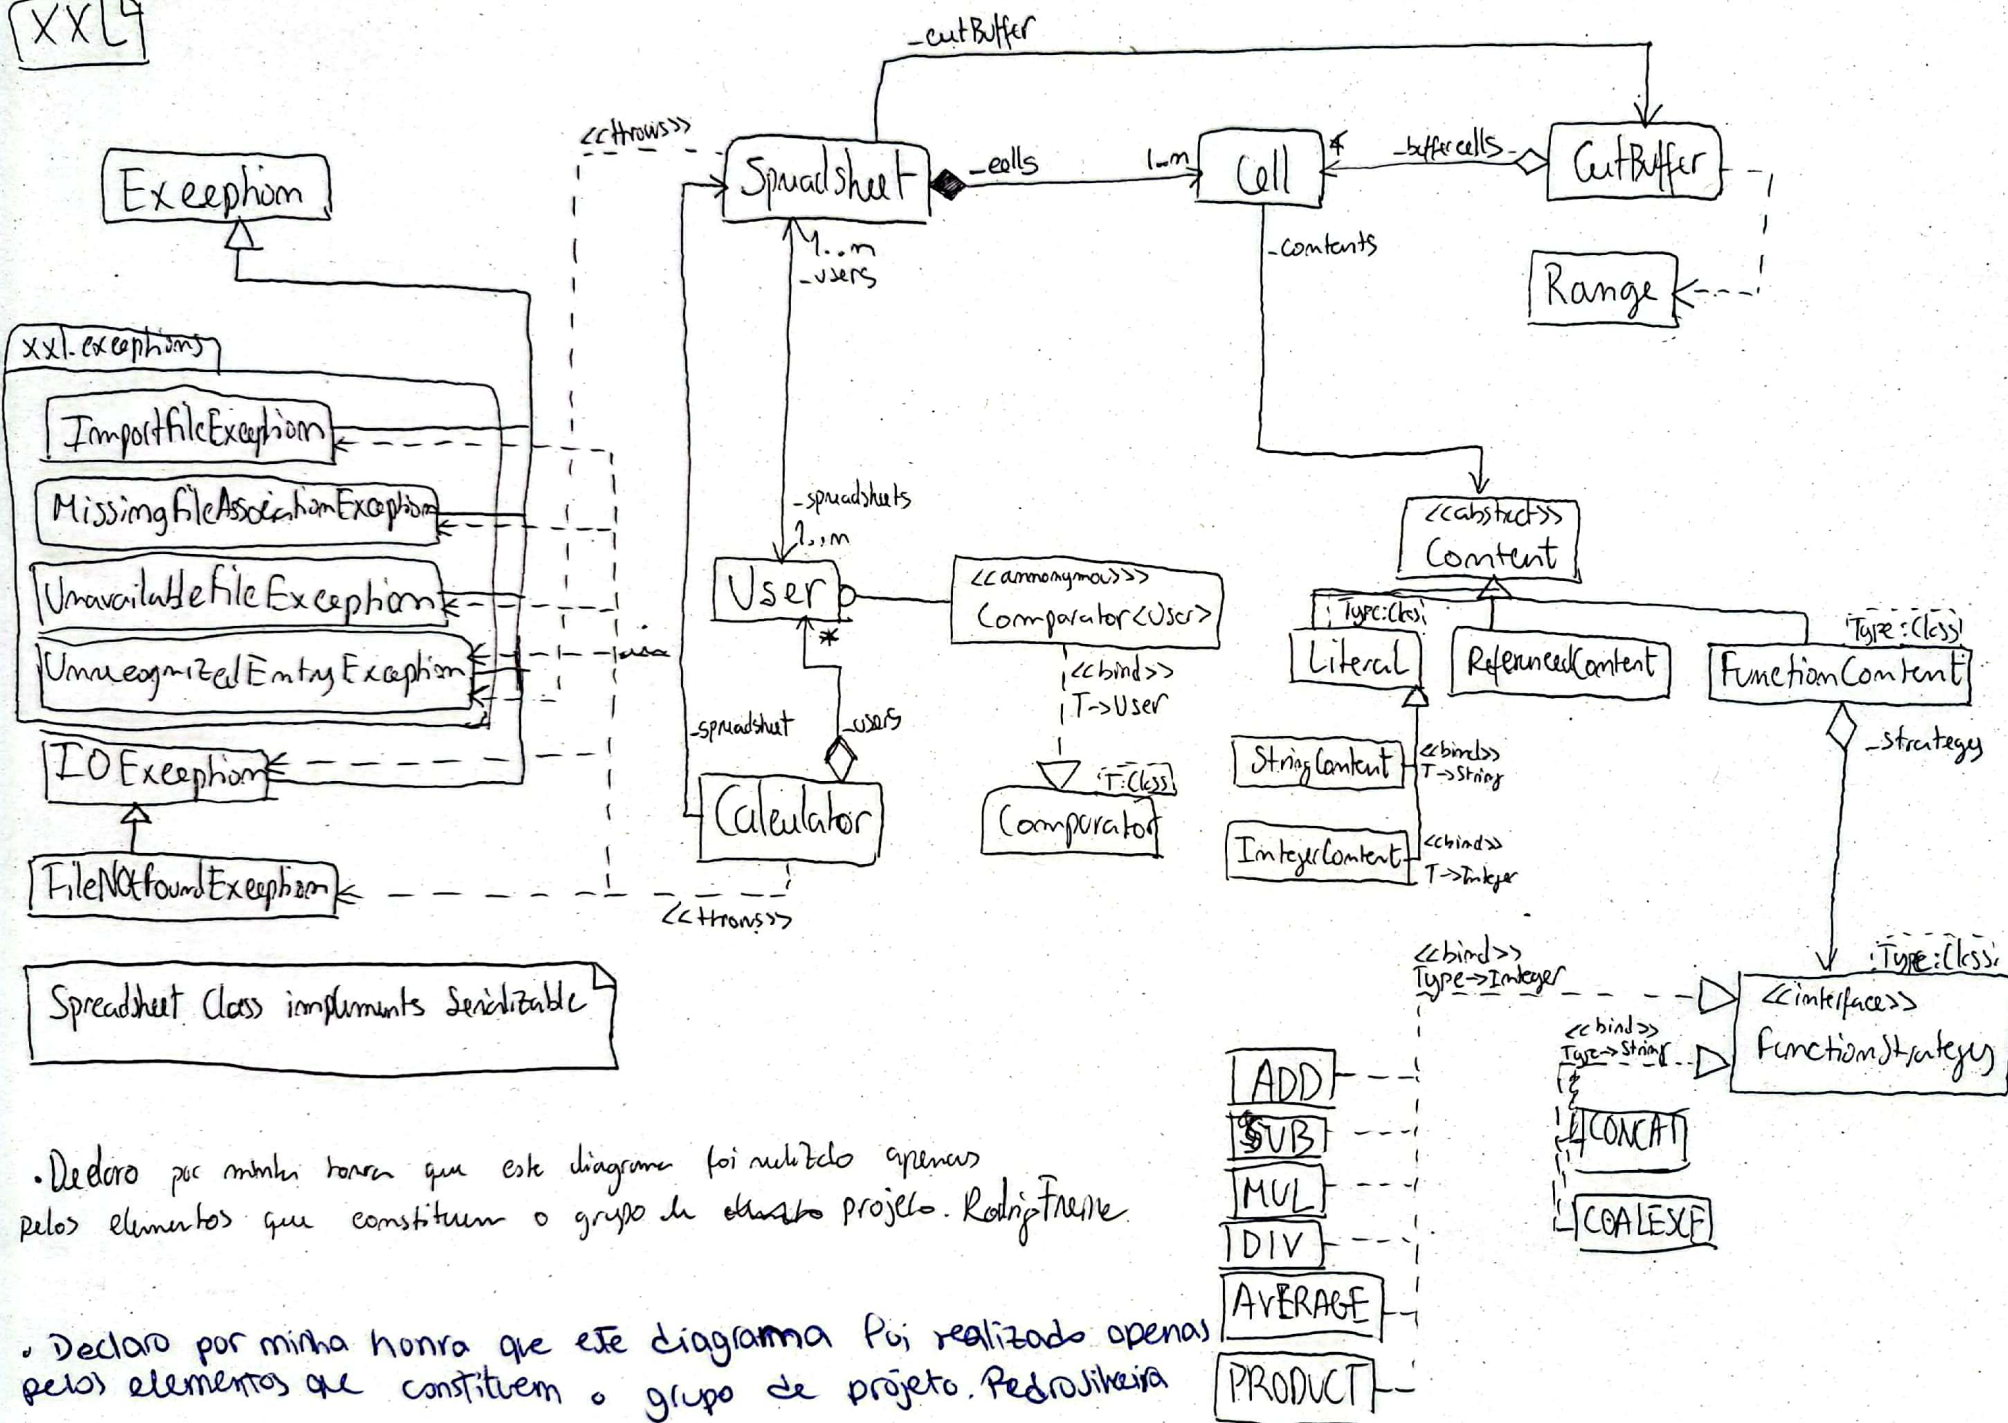 XXL
_cutBuffer
<<throws>>
Exception
Spreadsheet
_cells
1..n
Cell
*
_buffercells
CutBuffer
1..n
_users
_contents
Range
xxl.exceptions
ImportFileException
MissingFileAssociationException
UnavailableFileException
UnrecognizedEntryException
IOException
FileNotFoundException
_spreadsheets
1..n
User
*
<<annonymous>>
Comparator<User>
<<bind>>
T->User
_spreadsheet
_users
Calculator
T:Class
Comparator
<<throws>>
<<abstract>>
Content
Type:Class
Literal
ReferencedContent
Type:Class
FunctionContent
StringContent
<<bind>>
T->String
IntegerContent
<<bind>>
T->Integer
_strategy
Type:Class
<<interface>>
FunctionStrategy
<<bind>>
Type->Integer
<<bind>>
Type->String
ADD
SUB
MUL
DIV
AVERAGE
PRODUCT
CONCAT
COALESCE
Spreadsheet Class implements Serializable
. Declaro por minha honra que este diagrama foi realizado apenas
pelos elementos que constituem o grupo de projeto.
. Declaro por minha honra que este diagrama foi realizado apenas
pelos elementos que constituem o grupo de projeto. Pedro Silveira